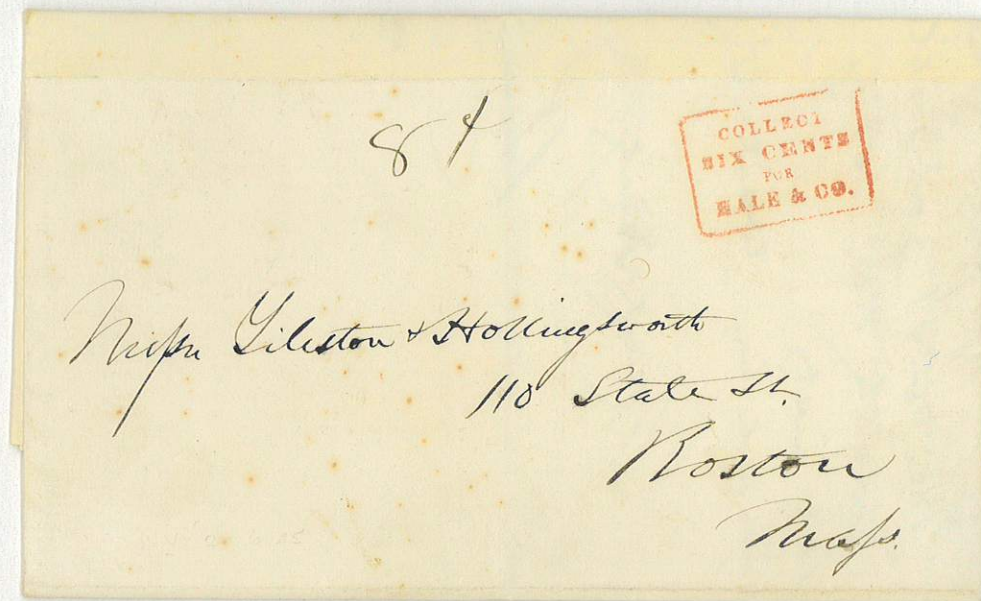 84
COLLECT
SIX CENTS
FOR
HALE & CO.
Messrs Tileston & Hollingsworth
110 State St.
Boston
Mass.